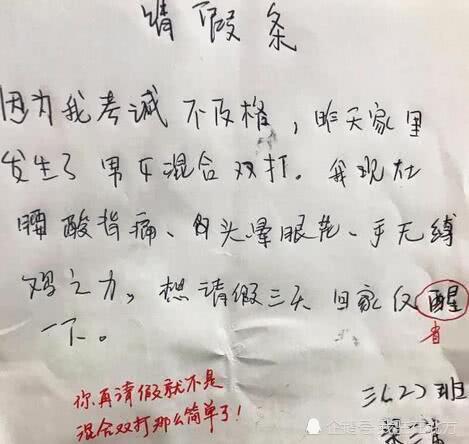 请假条
因为我考试不及格，昨天家里
发生了男女混合双打。我现在
腰酸背痛、白头晕眼花、手无缚
鸡之力。想请假三天回家仅醒
省
一下。
你再请假就不是
混合双打那么简单了！
三(2)班